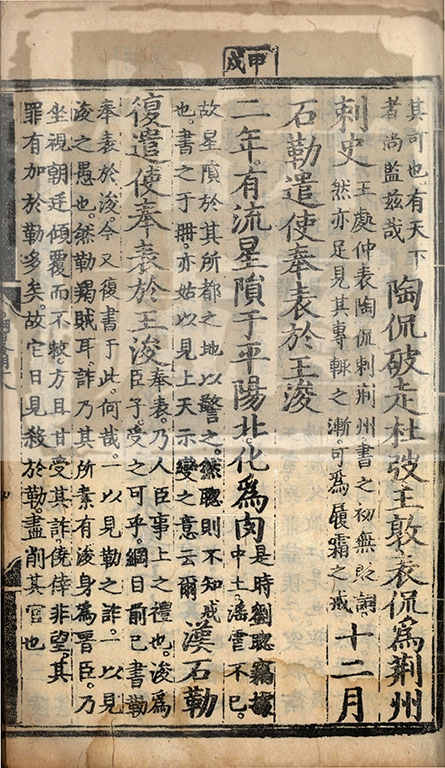 甲戌
其可也有天下
者尚監兹哉
陶侃破走杜弢王敦表侃爲荆州
刺史
王處仲表陶侃刺荆州書之初無貶詞
然亦足見其專輙之漸可爲履霜之戒
十二月
石勒遣使奉表於王浚
二年有流星隕于平陽北化爲肉
是時劉聰竊據
中土滛虐不已
故星隕於其所都之地以警之然聰則不知戒
也書之于冊亦姑以見上天示變之意云爾
漢石勒
復遣使奉表於王浚
奉表乃人臣事上之禮也浚爲
臣子受之可乎綱目前已書勒
奉表於浚今又復書于此何哉一以見勒之詐一以見
浚之愚也然勒羯賊耳詐乃其所素有浚身爲晉臣乃
坐視朝廷傾覆而不救方且甘受其詐僥倖非望其
罪有加於勒多矣故它日見殺於勒盡削其官也